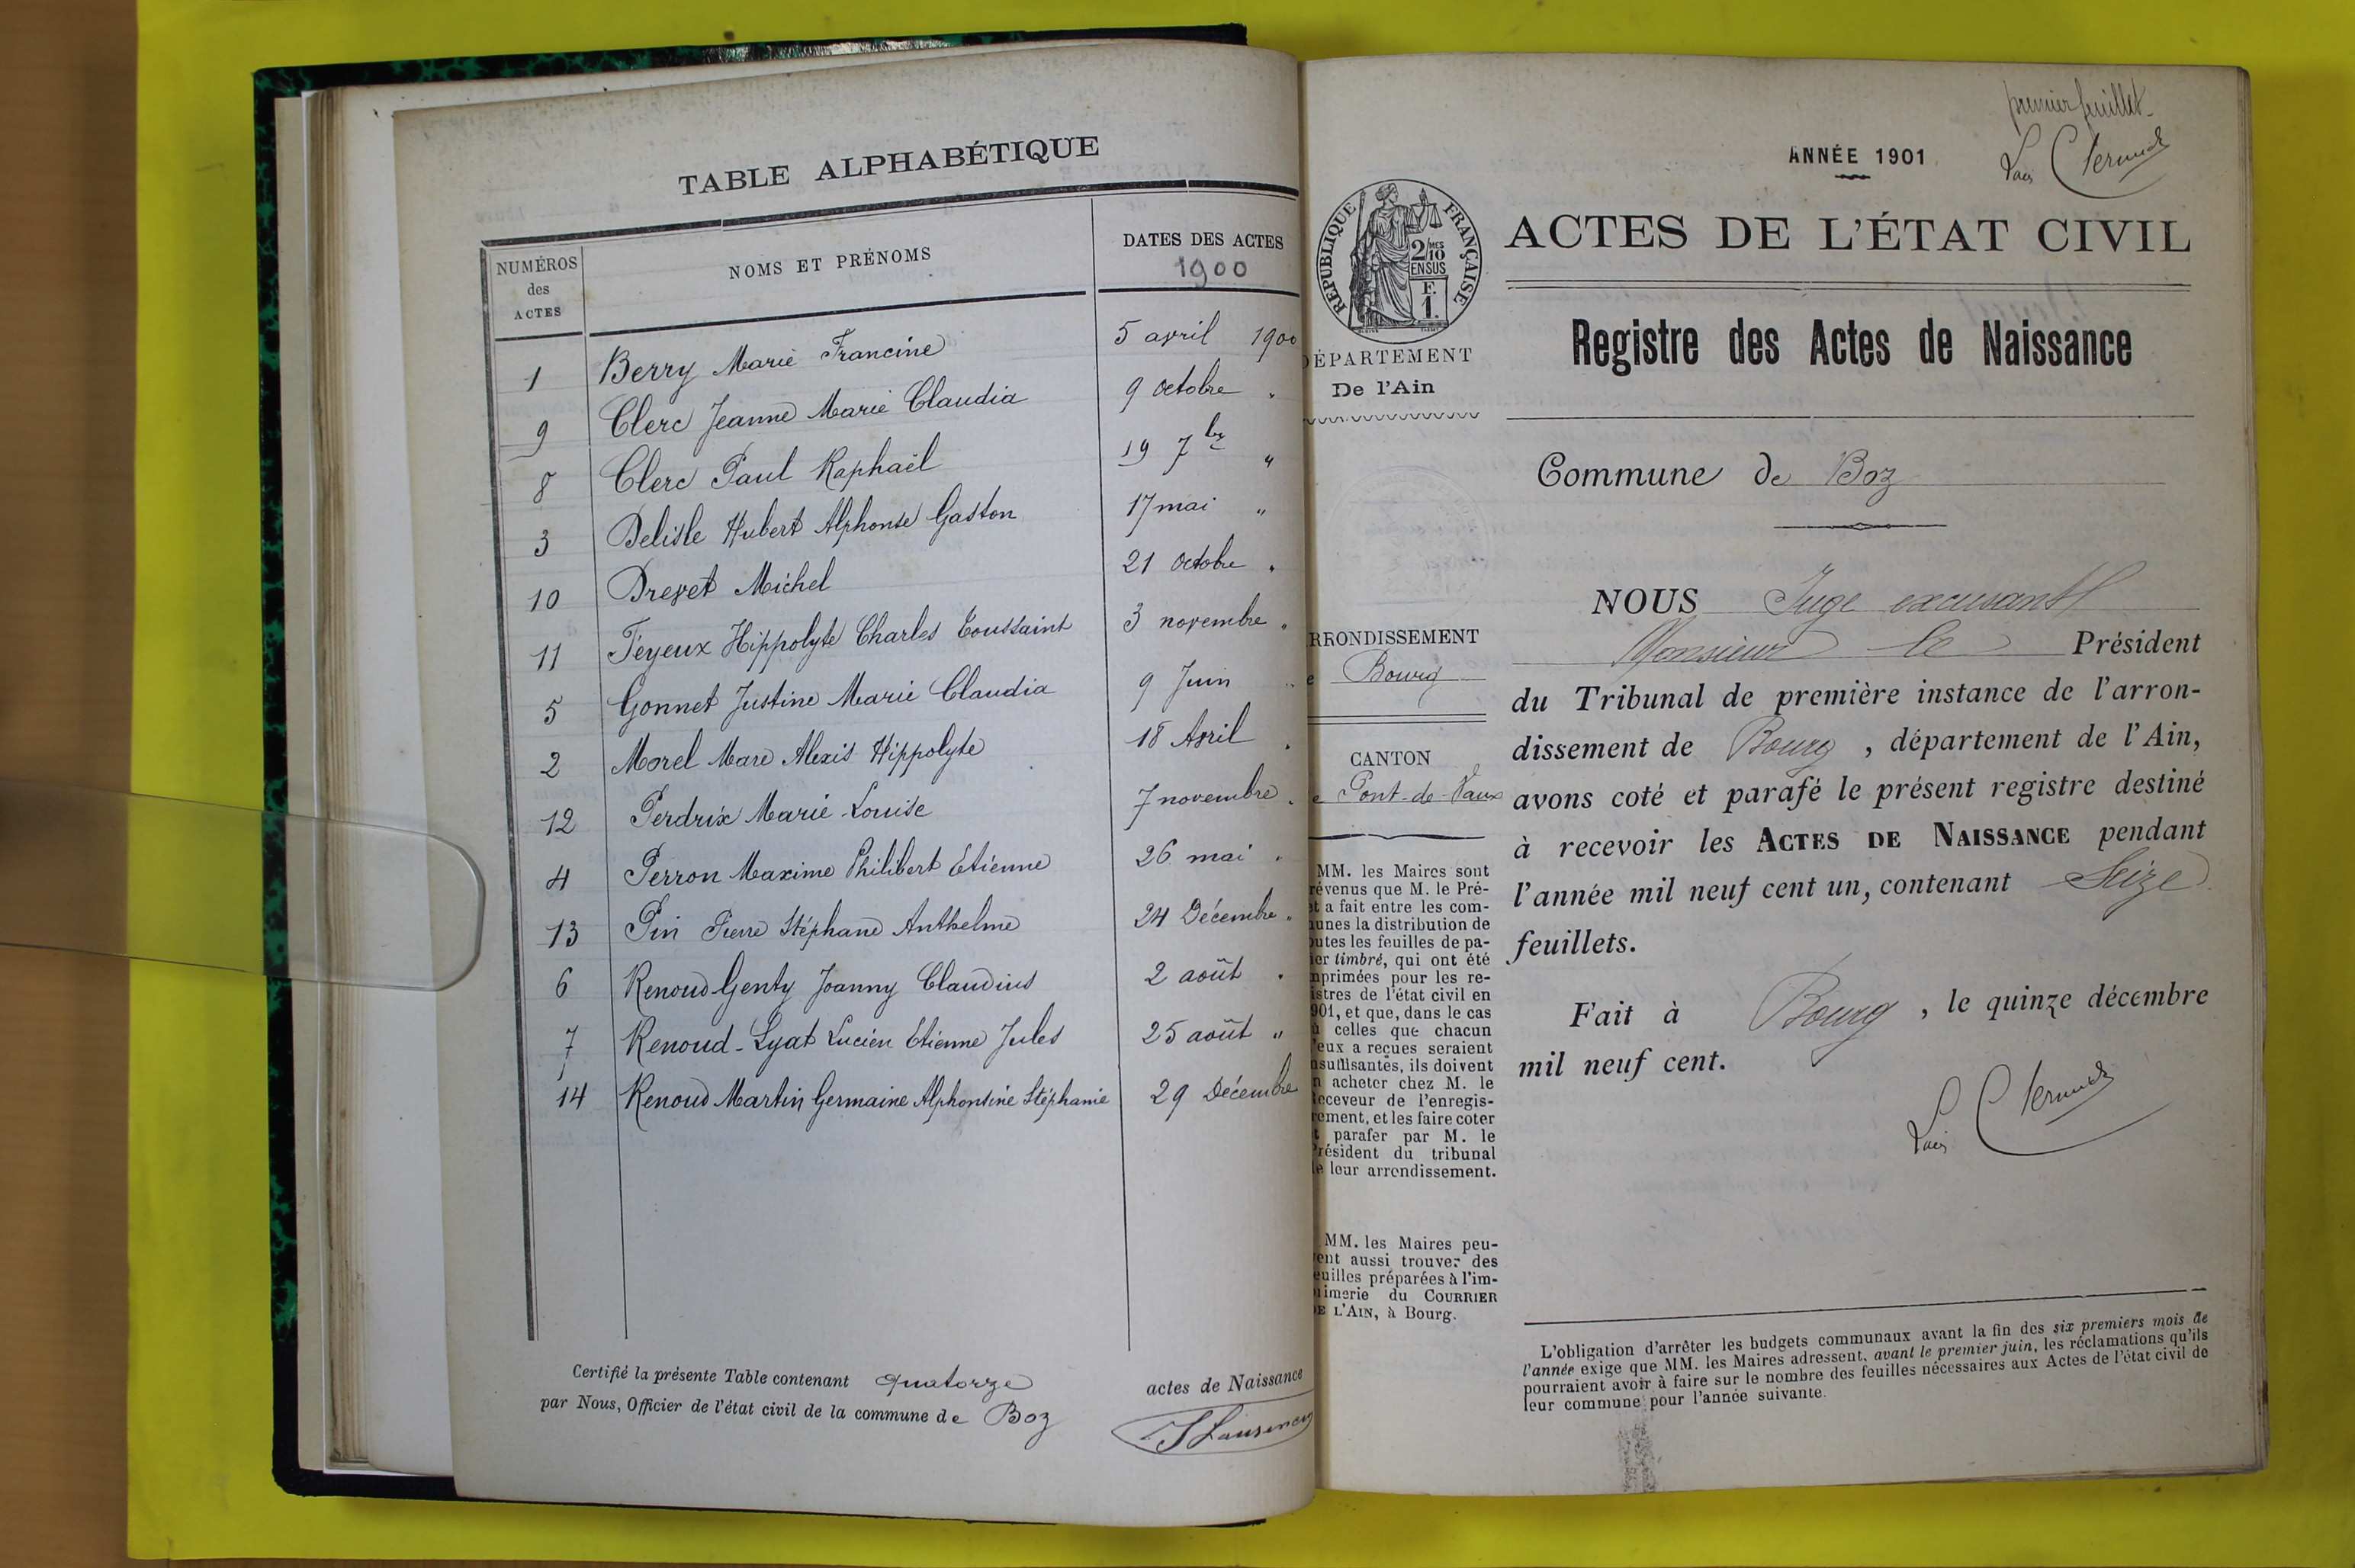 TABLE ALPHABÉTIQUE
NUMÉROS
des
ACTES
NOMS ET PRÉNOMS
DATES DES ACTES
1900
1 Berry Marie Francine 5 avril 1900
9 Clerc Jeanne Marie Claudia 9 octobre "
8 Clerc Paul Raphaël 19 7bre "
3 Delisle Hubert Alphonse Gaston 17 mai "
10 Drevet Michel 21 octobre "
11 Féyeux Hippolyte Charles Toussaint 3 novembre "
5 Gonnet Justine Marie Claudia 9 Juin "
2 Morel Marc Alexis Hippolyte 18 Avril "
12 Perdrix Marie-Louise 7 novembre "
4 Perron Maxime Philibert Étienne 26 mai "
13 Pin Pierre Stéphane Anthelme 24 Décembre "
6 Renoud Genty Joanny Claudius 2 août "
7 Renoud-Lyat Lucien Etienne Jules 25 août "
14 Renoud Martin Germaine Alphonsine Stéphanie 29 Décembre
Certifié la présente Table contenant quatorze actes de Naissance
par Nous, Officier de l'état civil de la commune de Boz
premier feuillet
ANNÉE 1901
RÉPUBLIQUE FRANÇAISE
2/MES
10
EN SUS
F.
1.
ACTES DE L'ÉTAT CIVIL
Registre des Actes de Naissance
DÉPARTEMENT
De l'Ain
Commune de Boz
RRONDISSEMENT
e Bourg
CANTON
e Pont-de-Vaux
NOUS Juge excusant
Monsieur le Président
du Tribunal de première instance de l'arron-
dissement de Bourg, département de l'Ain,
avons coté et parafé le présent registre destiné
à recevoir les ACTES DE NAISSANCE pendant
l'année mil neuf cent un, contenant Seize
feuillets.
Fait à Bourg, le quinze décembre
mil neuf cent.
MM. les Maires sont
révenus que M. le Pré-
et a fait entre les com-
unes la distribution de
outes les feuilles de pa-
ier timbré, qui ont été
mprimées pour les re-
istres de l'état civil en
901, et que, dans le cas
ù celles que chacun
'eux a reçues seraient
nsuffisantes, ils doivent
n acheter chez M. le
eceveur de l'enregis-
rement, et les faire coter
t parafer par M. le
Président du tribunal
e leur arrondissement.
MM. les Maires peu-
ent aussi trouver des
euilles préparées à l'im-
rimerie du COURRIER
DE L'AIN, à Bourg.
L'obligation d'arrêter les budgets communaux avant la fin des six premiers mois de
l'année exige que MM. les Maires adressent, avant le premier juin, les réclamations qu'ils
pourraient avoir à faire sur le nombre des feuilles nécessaires aux Actes de l'état civil de
leur commune pour l'année suivante.